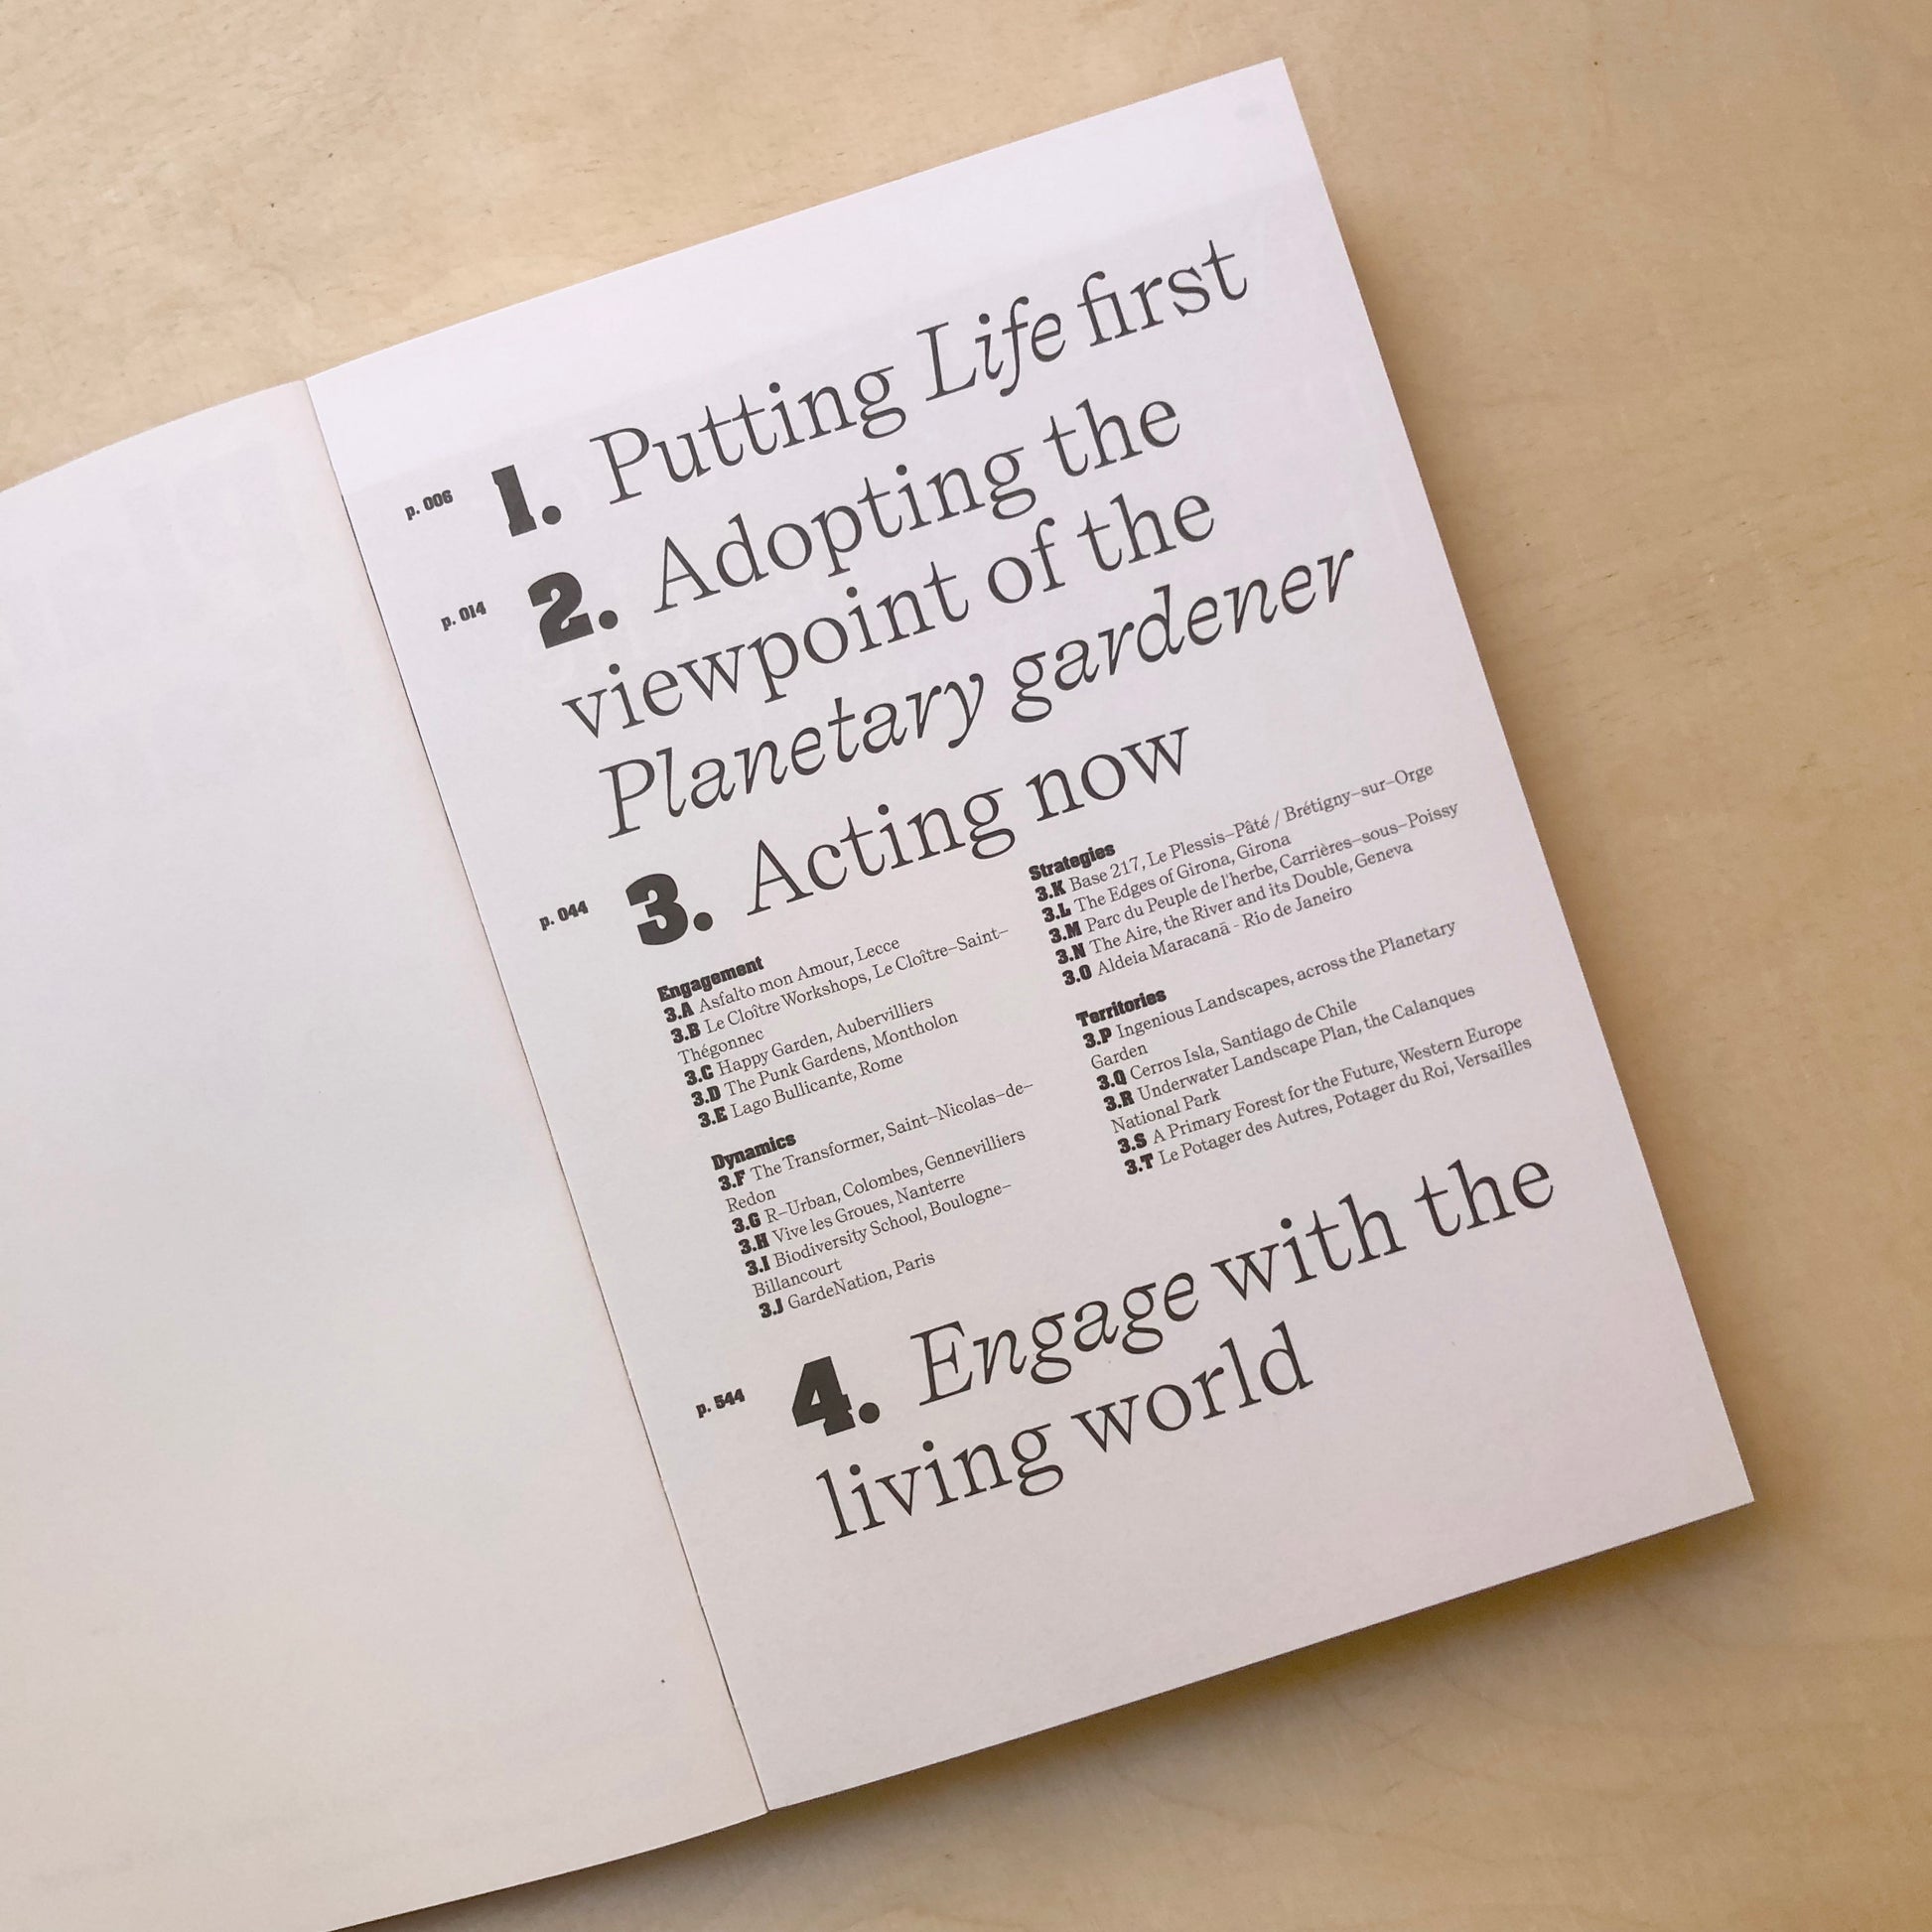 p. 006 1. Putting Life first
p. 014 2. Adopting the
viewpoint of the
Planetary gardener
p. 044 3. Acting now
Engagement
3.A Asfalto mon Amour, Lecce
3.B Le Cloître Workshops, Le Cloître–Saint–
Thégonnec
3.C Happy Garden, Aubervilliers
3.D The Punk Gardens, Montholon
3.E Lago Bullicante, Rome
Dynamics
3.F The Transformer, Saint–Nicolas–de–
Redon
3.G R–Urban, Colombes, Gennevilliers
3.H Vive les Groues, Nanterre
3.I Biodiversity School, Boulogne–
Billancourt
3.J GardeNation, Paris
Strategies
3.K Base 217, Le Plessis–Pâté / Brétigny–sur–Orge
3.L The Edges of Girona, Girona
3.M Parc du Peuple de l'herbe, Carrières–sous–Poissy
3.N The Aire, the River and its Double, Geneva
3.O Aldeia Maracanã - Rio de Janeiro
Territories
3.P Ingenious Landscapes, across the Planetary
Garden
3.Q Cerros Isla, Santiago de Chile
3.R Underwater Landscape Plan, the Calanques
National Park
3.S A Primary Forest for the Future, Western Europe
3.T Le Potager des Autres, Potager du Roi, Versailles
p. 544 4. Engage with the
living world